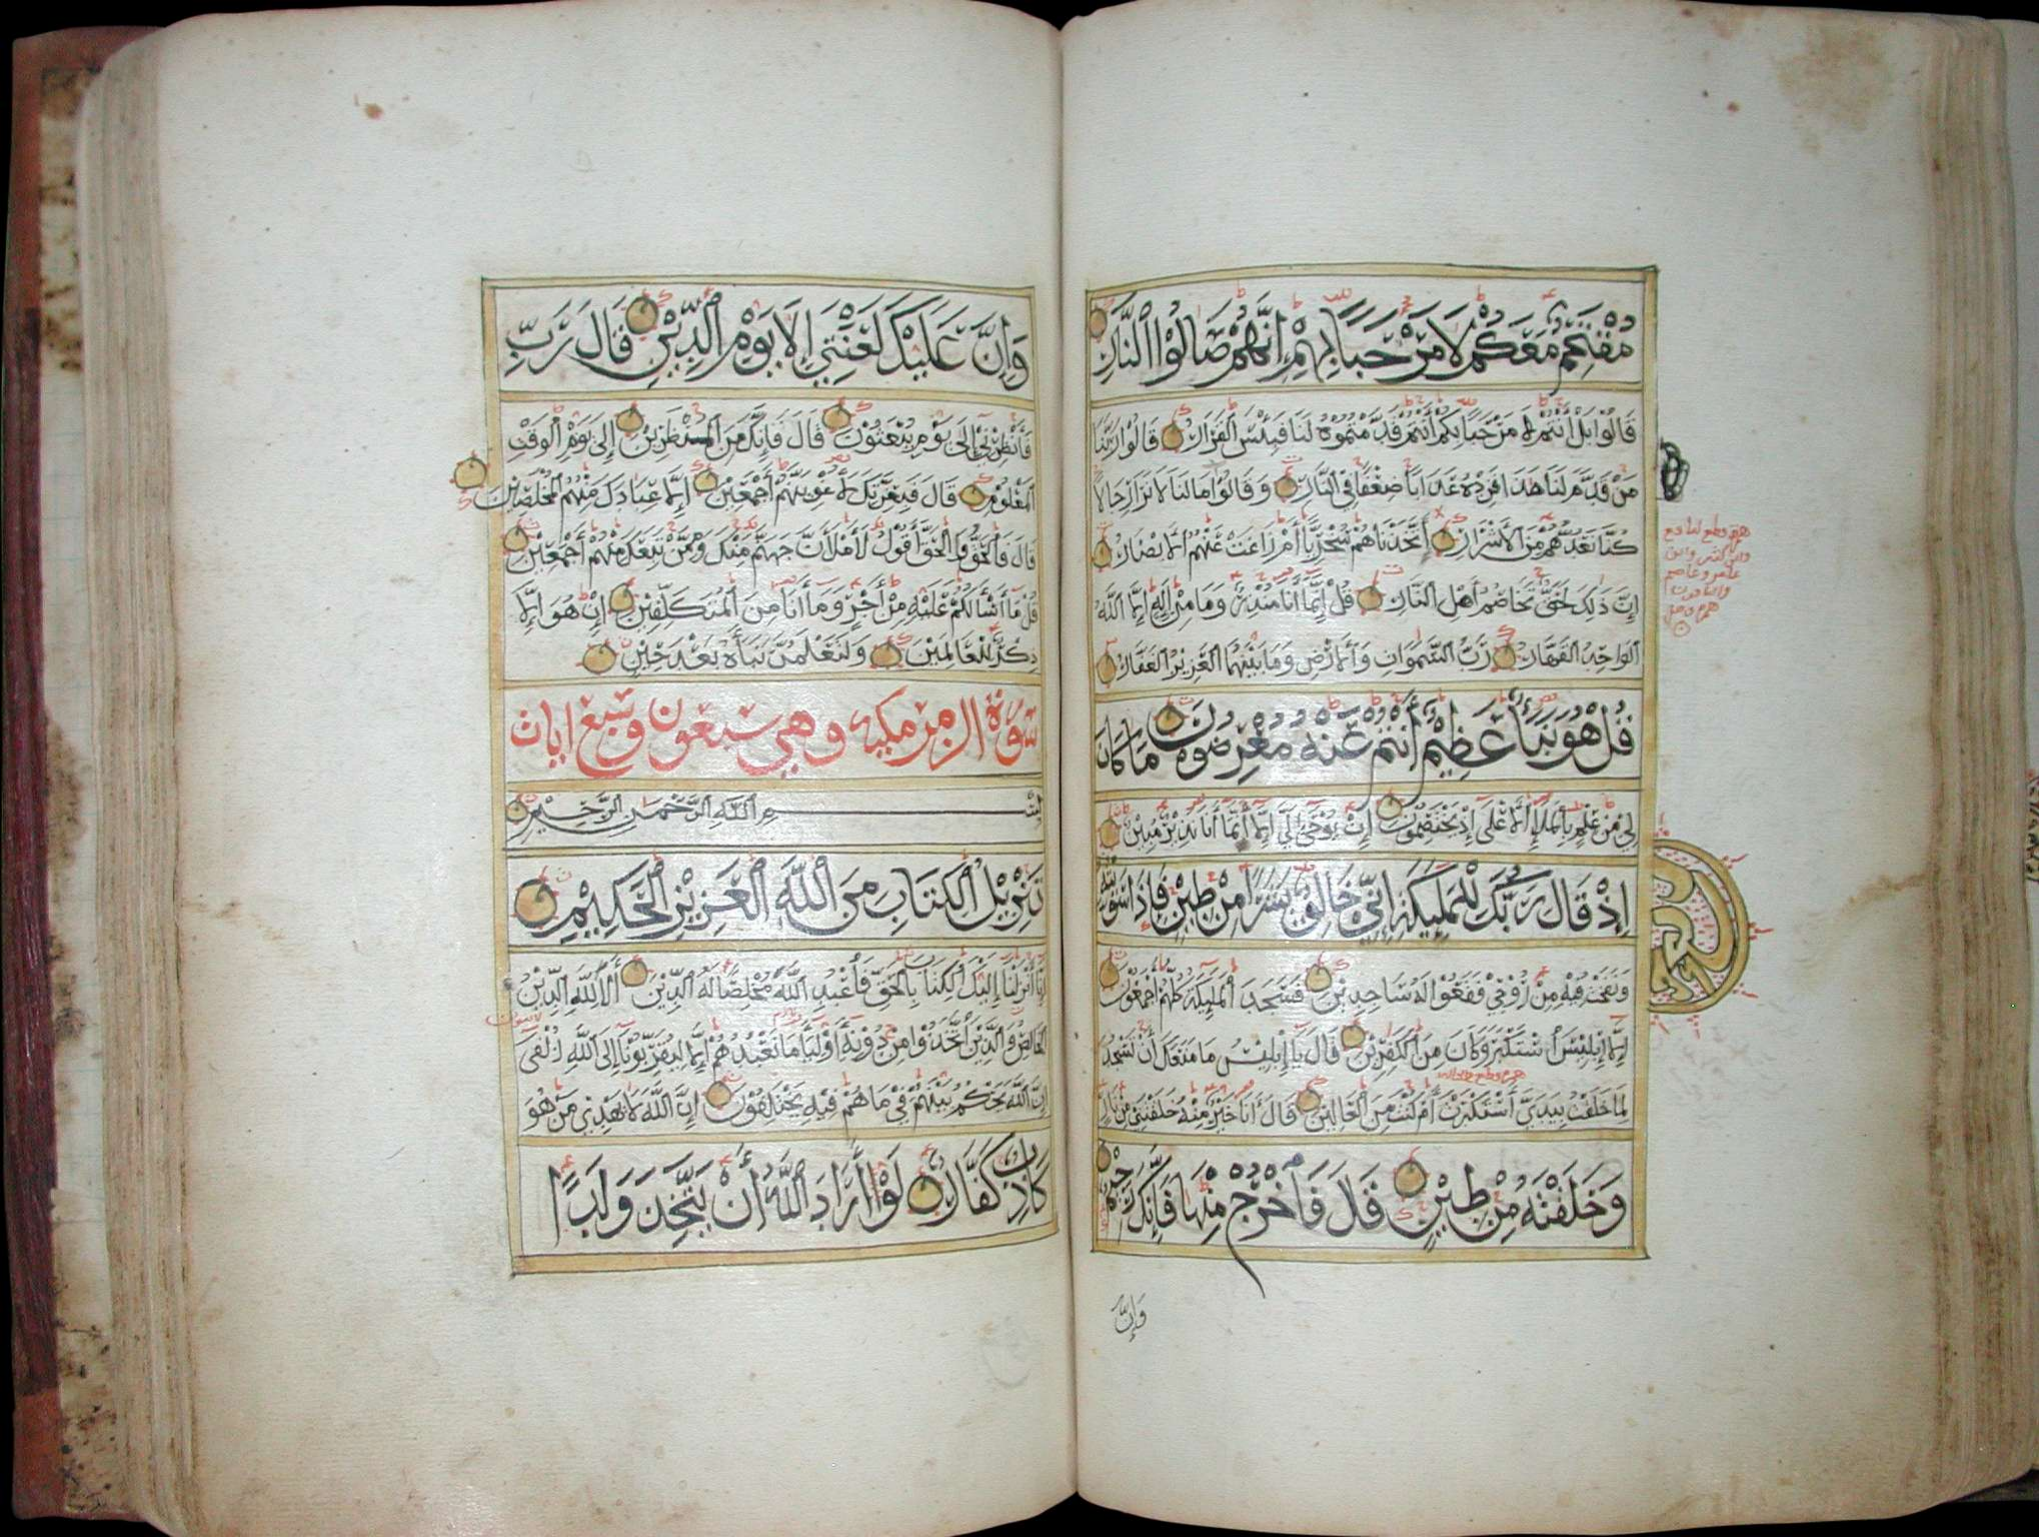 مُقْتَحِمٌ مَعَكُمْ لَا مَرْحَبًا بِهِمْ إِنَّهُمْ صَالُوا النَّارِ
قَالُوا بَلْ أَنْتُمْ لَا مَرْحَبًا بِكُمْ أَنْتُمْ قَدَّمْتُمُوهُ لَنَا فَبِئْسَ الْقَرَارُ قَالُوا رَبَّنَا
مَنْ قَدَّمَ لَنَا هَذَا فَزِدْهُ عَذَابًا ضِعْفًا فِي النَّارِ وَقَالُوا مَا لَنَا لَا نَرَى رِجَالًا
كُنَّا نَعُدُّهُمْ مِنَ الْأَشْرَارِ أَتَّخَذْنَاهُمْ سُخْرِيًّا أَمْ زَاغَتْ عَنْهُمُ الْأَبْصَارُ
إِنَّ ذَلِكَ لَحَقٌّ تَخَاصُمُ أَهْلِ النَّارِ قُلْ إِنَّمَا أَنَا مُنْذِرٌ وَمَا مِنْ إِلَهٍ إِلَّا اللَّهُ
الْوَاحِدُ الْقَهَّارُ رَبُّ السَّمَوَاتِ وَالْأَرْضِ وَمَا بَيْنَهُمَا الْعَزِيزُ الْغَفَّارُ
قُلْ هُوَ نَبَأٌ عَظِيمٌ أَنْتُمْ عَنْهُ مُعْرِضُونَ مَا كَانَ
لِيَ مِنْ عِلْمٍ بِالْمَلَإِ الْأَعْلَى إِذْ يَخْتَصِمُونَ إِنْ يُوحَى إِلَيَّ إِلَّا أَنَّمَا أَنَا نَذِيرٌ مُبِينٌ
إِذْ قَالَ رَبُّكَ لِلْمَلَئِكَةِ إِنِّي خَالِقٌ بَشَرًا مِنْ طِينٍ فَإِذَا سَوَّيْتُهُ
وَنَفَخْتُ فِيهِ مِنْ رُوحِي فَقَعُوا لَهُ سَاجِدِينَ فَسَجَدَ الْمَلَئِكَةُ كُلُّهُمْ أَجْمَعُونَ
إِلَّا إِبْلِيسَ اسْتَكْبَرَ وَكَانَ مِنَ الْكَفِرِينَ قَالَ يَا إِبْلِيسُ مَا مَنَعَكَ أَنْ تَسْجُدَ
لِمَا خَلَقْتُ بِيَدَيَّ أَسْتَكْبَرْتَ أَمْ كُنْتَ مِنَ الْعَالِينَ قَالَ أَنَا خَيْرٌ مِنْهُ خَلَقْتَنِي مِنْ نَارٍ
وَخَلَقْتَهُ مِنْ طِينٍ قَلَ فَاخْرُجْ مِنْهَا فَإِنَّكَ رَجِيمٌ
وَإِنَّ
وَإِنَّ عَلَيْكَ لَعْنَتِي إِلَى يَوْمِ الدِّينِ قَالَ رَبِّ
فَأَنْظِرْنِي إِلَى يَوْمِ يُبْعَثُونَ قَالَ فَإِنَّكَ مِنَ الْمُنْظَرِينَ إِلَى يَوْمِ الْوَقْتِ
الْمَعْلُومِ قَالَ فَبِعِزَّتِكَ لَأُغْوِيَنَّهُمْ أَجْمَعِينَ إِلَّا عِبَادَكَ مِنْهُمُ الْمُخْلَصِينَ
قَالَ فَالْحَقُّ وَالْحَقَّ أَقُولُ لَأَمْلَأَنَّ جَهَنَّمَ مِنْكَ وَمِمَّنْ تَبِعَكَ مِنْهُمْ أَجْمَعِينَ
قُلْ مَا أَسْأَلُكُمْ عَلَيْهِ مِنْ أَجْرٍ وَمَا أَنَا مِنَ الْمُتَكَلِّفِينَ إِنْ هُوَ إِلَّا
ذِكْرٌ لِلْعَالَمِينَ وَلَتَعْلَمُنَّ نَبَأَهُ بَعْدَ حِينٍ
سورة الزمر مكيه وهي سبعون وتسع ايات
بِسْمِ اللَّهِ الرَّحْمَنِ الرَّحِيمِ
تَنْزِيلُ الْكِتَابِ مِنَ اللَّهِ الْعَزِيزِ الْحَكِيمِ
إِنَّا أَنْزَلْنَا إِلَيْكَ الْكِتَابَ بِالْحَقِّ فَاعْبُدِ اللَّهَ مُخْلِصًا لَهُ الدِّينَ أَلَا لِلَّهِ الدِّينُ
الْخَالِصُ وَالَّذِينَ اتَّخَذُوا مِنْ دُونِهِ أَوْلِيَاءَ مَا نَعْبُدُهُمْ إِلَّا لِيُقَرِّبُونَا إِلَى اللَّهِ زُلْفَى
إِنَّ اللَّهَ يَحْكُمُ بَيْنَهُمْ فِي مَا هُمْ فِيهِ يَخْتَلِفُونَ إِنَّ اللَّهَ لَا يَهْدِي مَنْ هُوَ
كَاذِبٌ كَفَّارٌ لَوْ أَرَادَ اللَّهُ أَنْ يَتَّخِذَ وَلَدًا